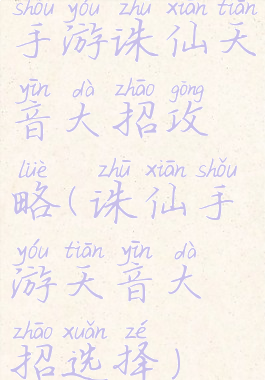 shǒu yóu zhū xiān tiān
手游诛仙天
yīn dà zhāo gōng
音大招攻
lüè zhū xiān shǒu
略(诛仙手
yóu tiān yīn dà
游天音大
zhāo xuǎn zé
招选择)